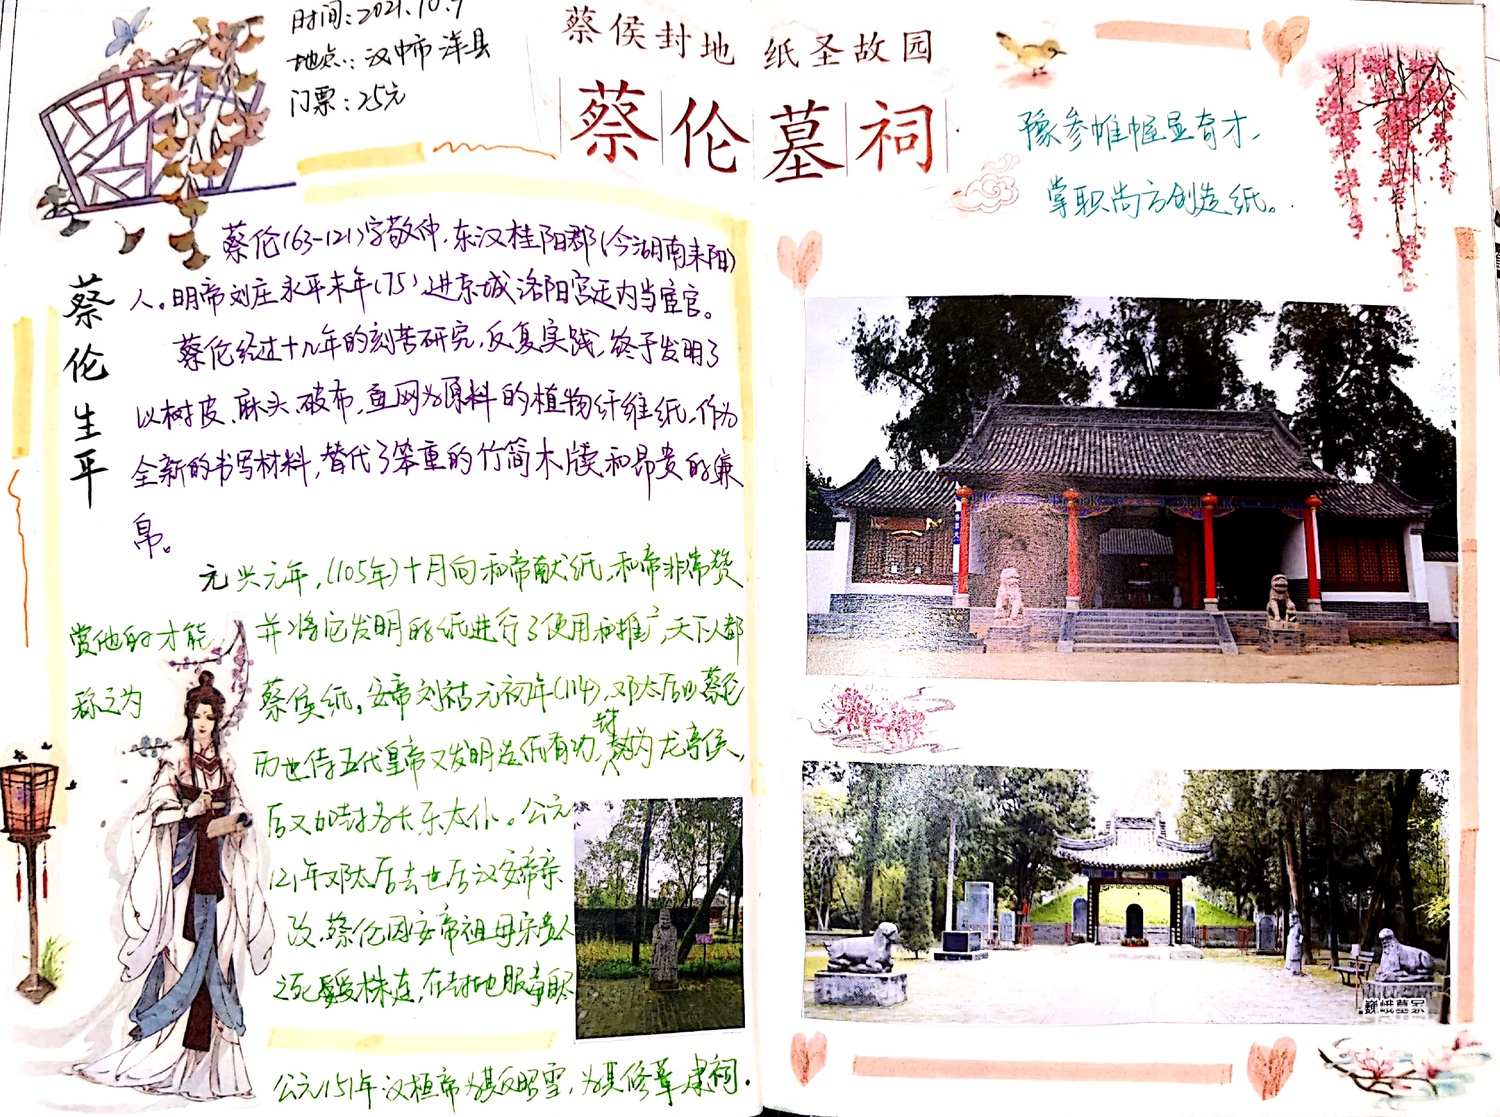 时间:2021.10.7
地点:汉中市洋县
门票:25元
蔡侯封地 纸圣故园
蔡伦墓祠
蔡伦生平
蔡伦(63-121)字敬仲,东汉桂阳郡(今湖南耒阳)
人。明帝刘庄永平末年(75)进京城洛阳宫廷内当宦官。
蔡伦经过十几年的刻苦研究,反复实践,终于发明了
以树皮、麻头、破布,鱼网为原料的植物纤维纸,作为
全新的书写材料,替代了笨重的竹简木牍和昂贵的缣
帛。
元兴元年,(105年)十月向和帝献纸,和帝非常赞
赏他的才能,并将它发明的纸进行了使用和推广,天下人都
称之为蔡侯纸。安帝刘祜元初年(114),邓太后以蔡伦
历世侍五代皇帝又发明造纸有功,封为龙亭侯,
后又加封为长乐太仆。公元
121年邓太后去世后汉安帝亲
政,蔡伦因安帝祖母宋贵人
之死受株连,在封地服毒
公元151年汉桓帝为其反昭雪,为其修墓建祠.
豫参帷幄显奇才,
掌职尚方创造纸。
巍峨墓冢